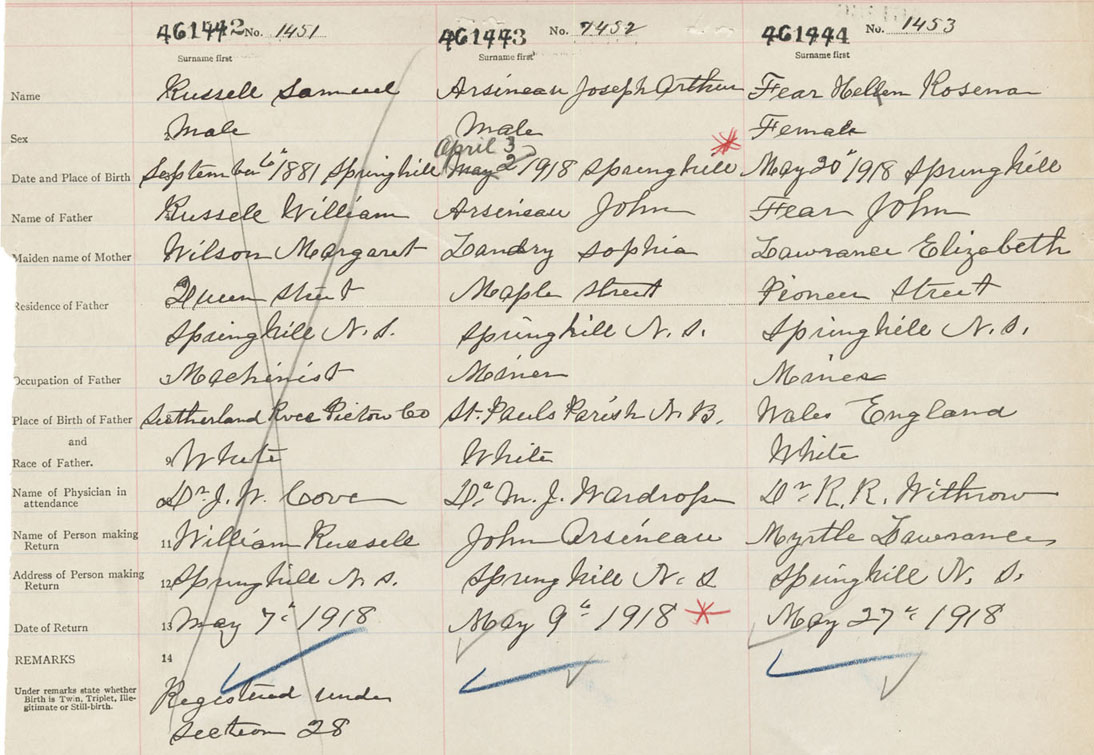 461442 No. 1451 461443 No. 7452 461444 No. 1453
Surname first Surname first Surname first
Name Russell Samuel Arsineau Joseph Arthur Fear Hellen Rosena
Sex 2 Male Male Female
April 3
Date and Place of Birth September 6th 1881 Springhill May 2 1918 Springhill May 20th 1918 Springhill
Name of Father Russell William Arsineau John Fear John
Maiden name of Mother Wilson Margaret Landry Sophia Lawrance Elizabeth
Residence of Father Queen Street Maple Street Pioneer Street
Springhill N. S. Springhill N. S. Springhill N. S.
Occupation of Father Machinist Miner Miner
Place of Birth of Father Sutherland River Pictou Co St. Pauls Parish N. B. Wales England
and
Race of Father. 9 White White White
Name of Physician in
attendance 10 Dr J. W. Cove Dr M. J. Wardrope Dr R. R. Withrow
Name of Person making
Return 11 William Russell John Arsineau Myrtle Lawrance
Address of Person making
Return 12 Springhill N. S. Springhill N. S Springhill N. S.
Date of Return 13 May 7th 1918 May 9th 1918 May 27th 1918
REMARKS 14
Under remarks state whether
Birth is Twin, Triplet, Ille-
gitimate or Still-birth.
Registered under
Section 28